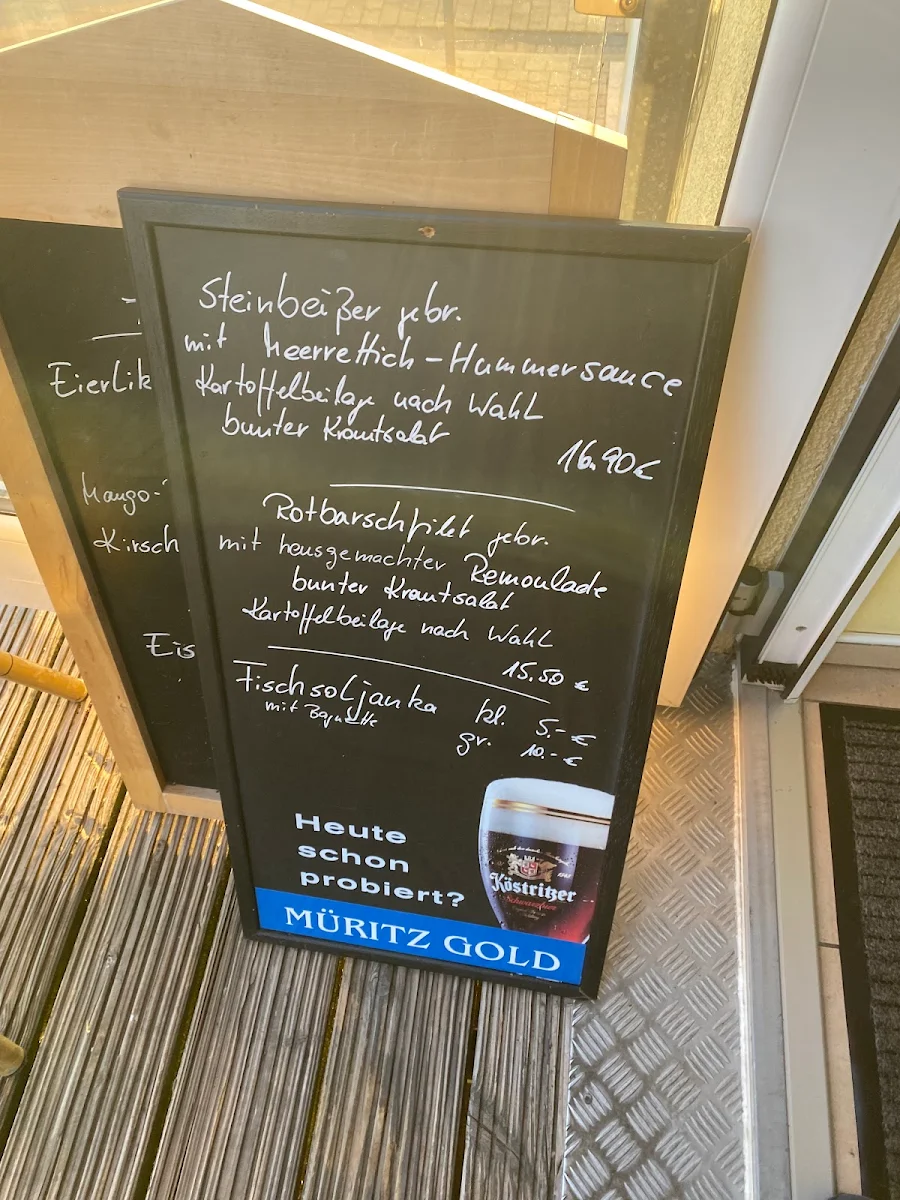 Steinbeißer gebr.
mit Meerrettich-Hummersauce
Kartoffelbeilage nach Wahl
bunter Krautsalat
16.90€
Rotbarschfilet gebr.
mit hausgemachter Remoulade
bunter Krautsalat
Kartoffelbeilage nach Wahl
15.50 €
Fischsoljanka kl. 5.-€
mit Baguette gr. 10.-€
Heute
schon
probiert?
Köstritzer
Schwarzbier
MÜRITZ GOLD
EierLik
Mango-
Kirsch
Eis